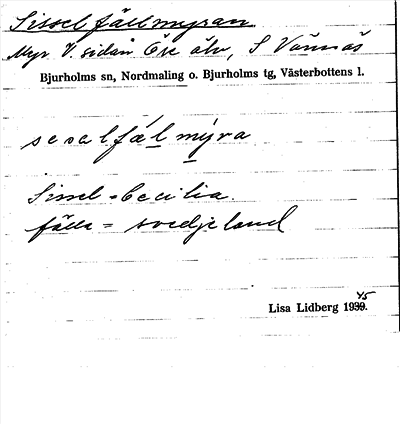 Sissel fällmyran
Myr V. sidan Öre älv, S Vännäs
Bjurholms sn, Nordmaling o. Bjurholms tg, Västerbottens l.
sesalfálmýra
Sissel = Cecilia.
fälla = svedjeland
Lisa Lidberg 1939. 45